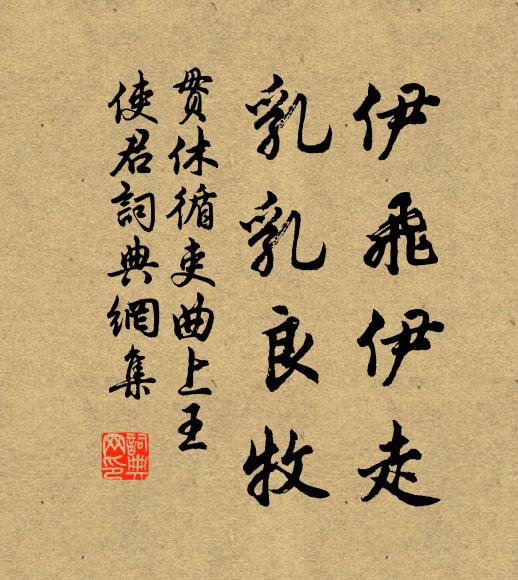 伊飛伊走
乳乳良牧
贯休循吏曲上王
使君詞典網集
詞典
网印